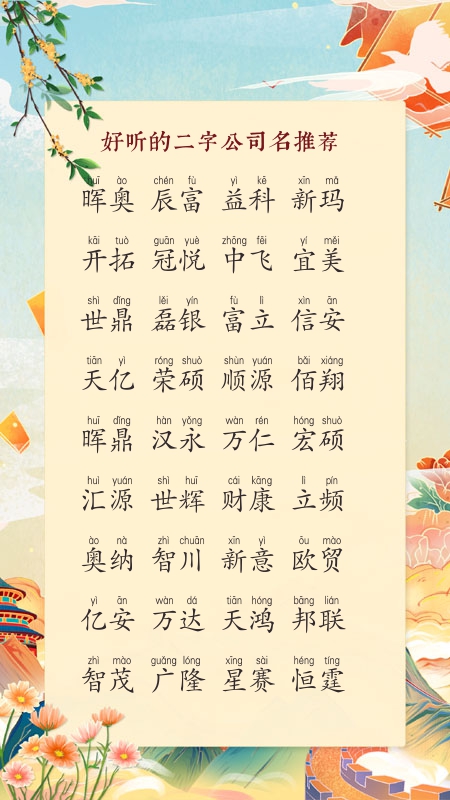 好听的二字公司名推荐
huī ào chén fù yì kē xīn mǎ
晖奥 辰富 益科 新玛
kāi tuò guān yuè zhōng fēi yí měi
开拓 冠悦 中飞 宜美
shì dǐng lěi yín fù lì xìn ān
世鼎 磊银 富立 信安
tiān yì róng shuò shùn yuán bǎi xiáng
天亿 荣硕 顺源 佰翔
huī dǐng hàn yǒng wàn rén hóng shuò
晖鼎 汉永 万仁 宏硕
huì yuán shì huī cái kāng lì pín
汇源 世辉 财康 立频
ào nà zhì chuān xīn yì ōu mào
奥纳 智川 新意 欧贸
yì ān wàn dá tiān hóng bāng lián
亿安 万达 天鸿 邦联
zhì mào guǎng lóng xīng sài héng tíng
智茂 广隆 星赛 恒霆